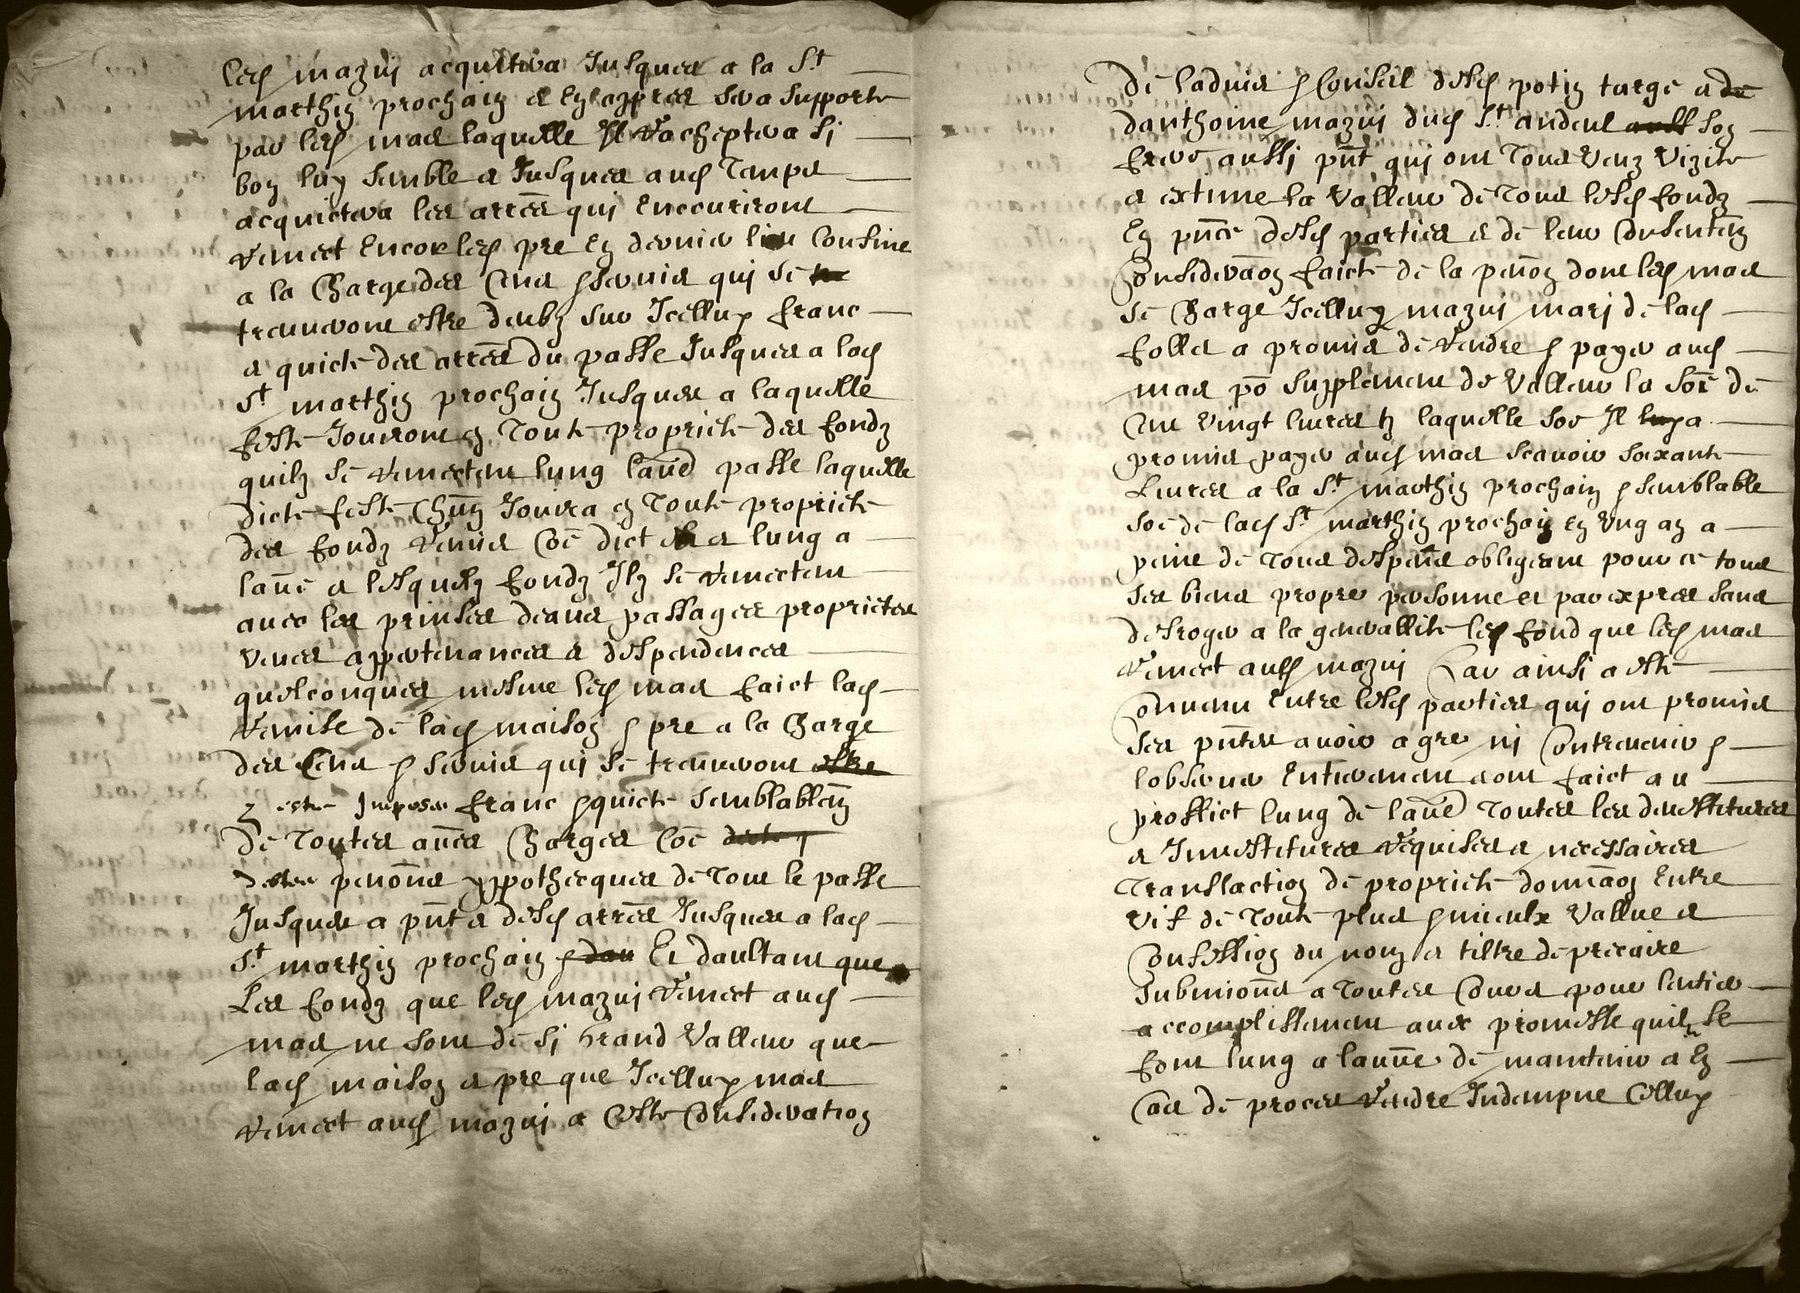 led mazuj acquitera Jusques a la St
marthin prochain & En appres sera supporte
par led mas laquelle Il Racheptera si
bon luy semble & Jusques aud Temps
acquictera les arres qui Encouriront
Remect Encor led pre En dernier lieu Confine
a la Charge des Cens & servis qui se
treuveront estre deubz sur Icelluy franc
& quicte des arres du passe Jusques a lad
St marthin prochain Jusques a laquelle
feste Jouiront en Toute propriete des fondz
quilz se remectent lung lautre passe laquelle
dicte feste Chun Jouira en Toute propriete
des fondz Remis Coe dict est & lung a
laue & lesquelz fondz Ilz se remectent
avec les prinses deaus passages proprietes
veues appertenances & despendences
quelconques mesme led mas faict lad
Remise de lad maison & pre a la Charge
des Cens & servis qui se treuveront estre
estre Imposes franc & quicte semblablemt
De Toutes aues Charges Coe
debtes penons yppothecques de Tout le passe
Jusques a pnt & desd arres Jusques a lad
St marthin prochain & dau Et daultant que
Les fondz que led mazuj Remect aud
mas ne sont de si Grand Valleur que
lad maison & pre que Icelluy mas
remect aud mazuj a Ceste Consideration
De ladvis & Conseil desd potin turge & de
danthoine mazuj dud St andeul son
frere aussi pnt qui ont Tous Veuz Vizite
& extime la Valleur de Tous lesd fondz
En pnce desd parties & de leur Consentem
Consideraon faicte de la penon dont led mas
se Charge Icelluy mazuj mari de lad
follet a promis de Rendre & payer aud
mas po supplement de Valleur la soe de
Cent vingt livres tz laquelle soe Il luy a
promis payer aud mas scavoir soixante
Livres a la St marthin prochain & semblable
soe de lad St marthin prochain En Ung an a
peine de Tous despens obligeant pour ce tous
ses biens propre personne et par expres sans
desroger a la generallite led fond que led mas
Remect aud mazuj Car ainsi a este
Convenu Entre lesd parties qui ont promis
ses pntes avoir a gre ni Contrevenir &
lobserver Entierement & ont faict au
proffict lung de laue Toutes les devestitures
& Investitures Requises & necessaires
Translaction de propriete donnaon Entre
vif de Toute plus & mieulx Vallue &
Confession du nom & tiltre de precaire
Submions a Toutes Cours pour lentier
accomplissement avec promesse quilz se
font lung a lautre de maintenir & En
Cas de proces Rendre Indempne Celluy